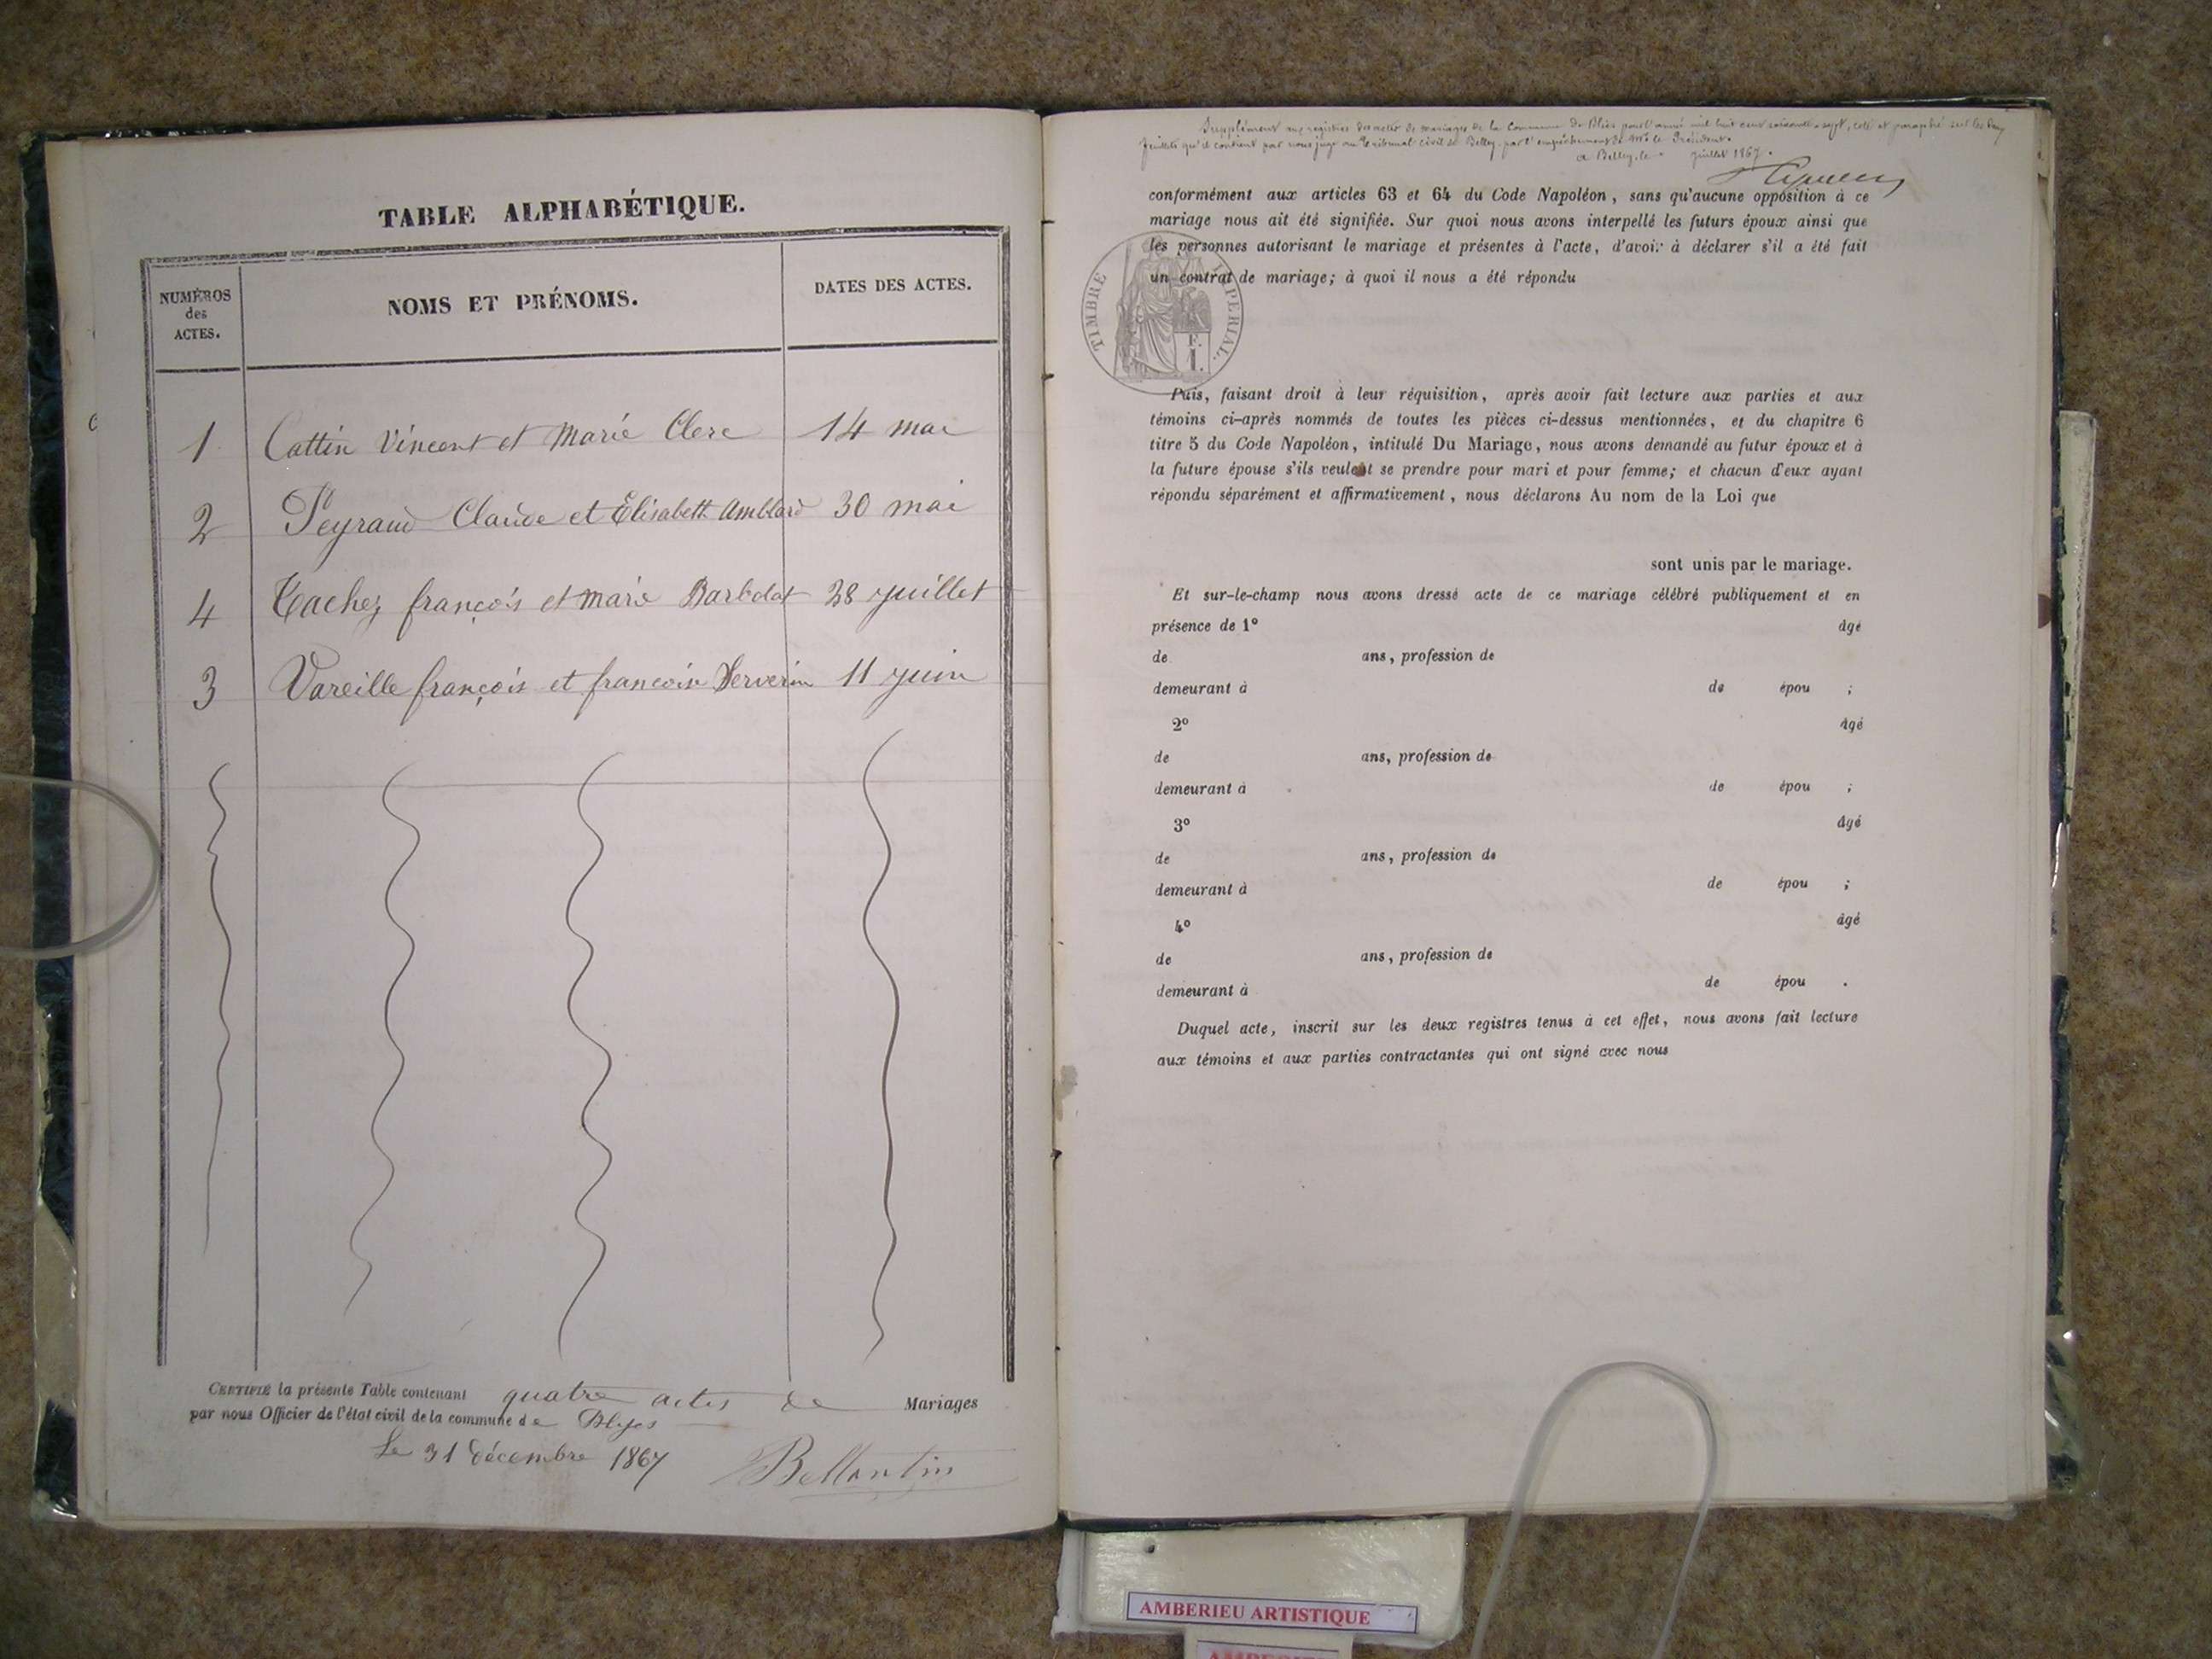 TABLE ALPHABÉTIQUE.
NUMÉROS
des
ACTES.
NOMS ET PRÉNOMS.
DATES DES ACTES.
1 Cattin Vincent et Marie Clerc 14 mai
2 Peyraud Claude et Elisabeth Amblard 30 mai
4 Tachez françois et marie Barbolat 28 juillet
3 Vareille françois et francoise Serverin 11 juin
CERTIFIÉ la présente Table contenant quatre actes de Mariages
par nous Officier de l'état civil de la commune de Blyes
Le 31 décembre 1867 Bellantin
Supplément aux registres des actes de mariages de la Commune de Blies pour l'année mil huit cent soixante-sept, coté et paraphé sur les
feuillets qu'il contient par nous juge au Tribunal civil de Belley par l'empêchement de Mr le Président.
a Belley, le juillet 1867.
conformément aux articles 63 et 64 du Code Napoléon, sans qu'aucune opposition à ce
mariage nous ait été signifiée. Sur quoi nous avons interpellé les futurs époux ainsi que
les personnes autorisant le mariage et présentes à l'acte, d'avoir à déclarer s'il a été fait
un contrat de mariage; à quoi il nous a été répondu
TIMBRE IMPÉRIAL.
F.
1.
Puis, faisant droit à leur réquisition, après avoir fait lecture aux parties et aux
témoins ci-après nommés de toutes les pièces ci-dessus mentionnées, et du chapitre 6
titre 5 du Code Napoléon, intitulé Du Mariage, nous avons demandé au futur époux et à
la future épouse s'ils veulent se prendre pour mari et pour femme; et chacun d'eux ayant
répondu séparément et affirmativement, nous déclarons Au nom de la Loi que
sont unis par le mariage.
Et sur-le-champ nous avons dressé acte de ce mariage célébré publiquement et en
présence de 1º âgé
de ans, profession de
demeurant à de épou ;
2º âgé
de ans, profession de
demeurant à de épou ;
3º âgé
de ans, profession de
demeurant à de épou ;
4º âgé
de ans, profession de
demeurant à de épou .
Duquel acte, inscrit sur les deux registres tenus à cet effet, nous avons fait lecture
aux témoins et aux parties contractantes qui ont signé avec nous
AMBERIEU ARTISTIQUE